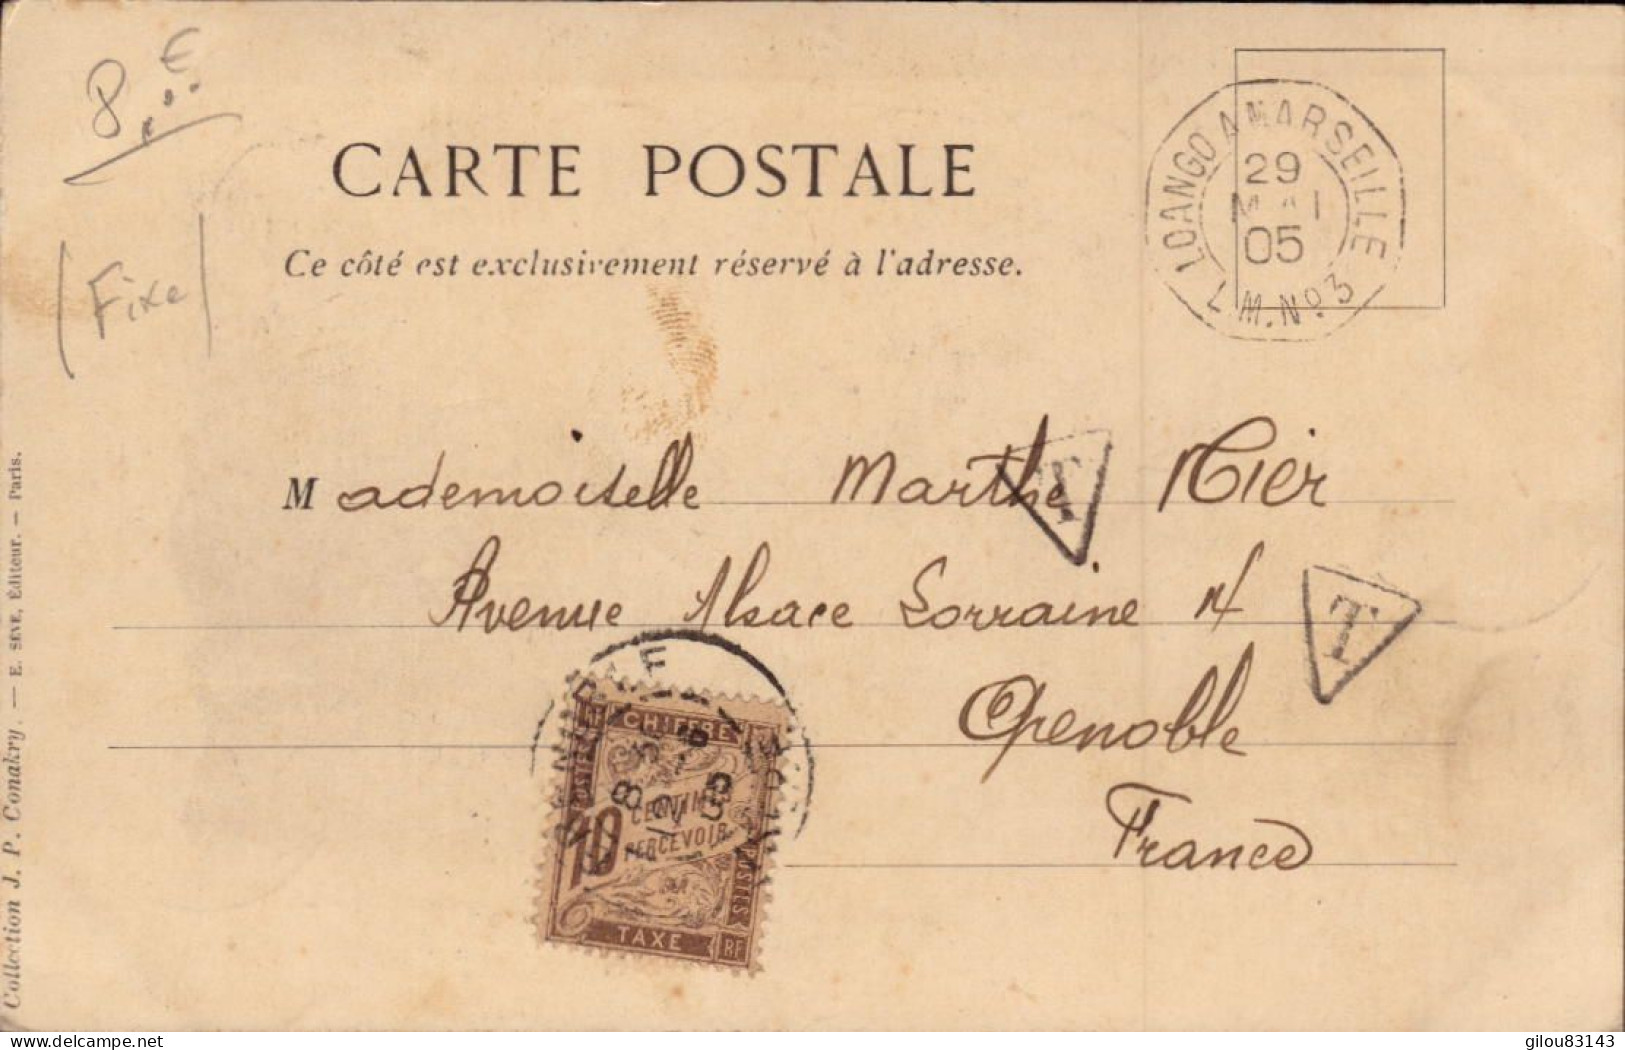 8,.. €
(Fixe)
CARTE POSTALE
Ce côté est exclusivement réservé à l'adresse.
LOANGO A MARSEILLE
29
MAI
05
L.M. Nº 3
Mademoiselle Marthe
T
Avenue Alsace Lorraine
T
Grenoble
France
CHIFFRE
POSTES
10
CENTIMES
PERCEVOIR
TAXE
RF
Collection J. P. Conakry. — E. SEVE, Éditeur. — Paris.
delcampe.net
gilou83143